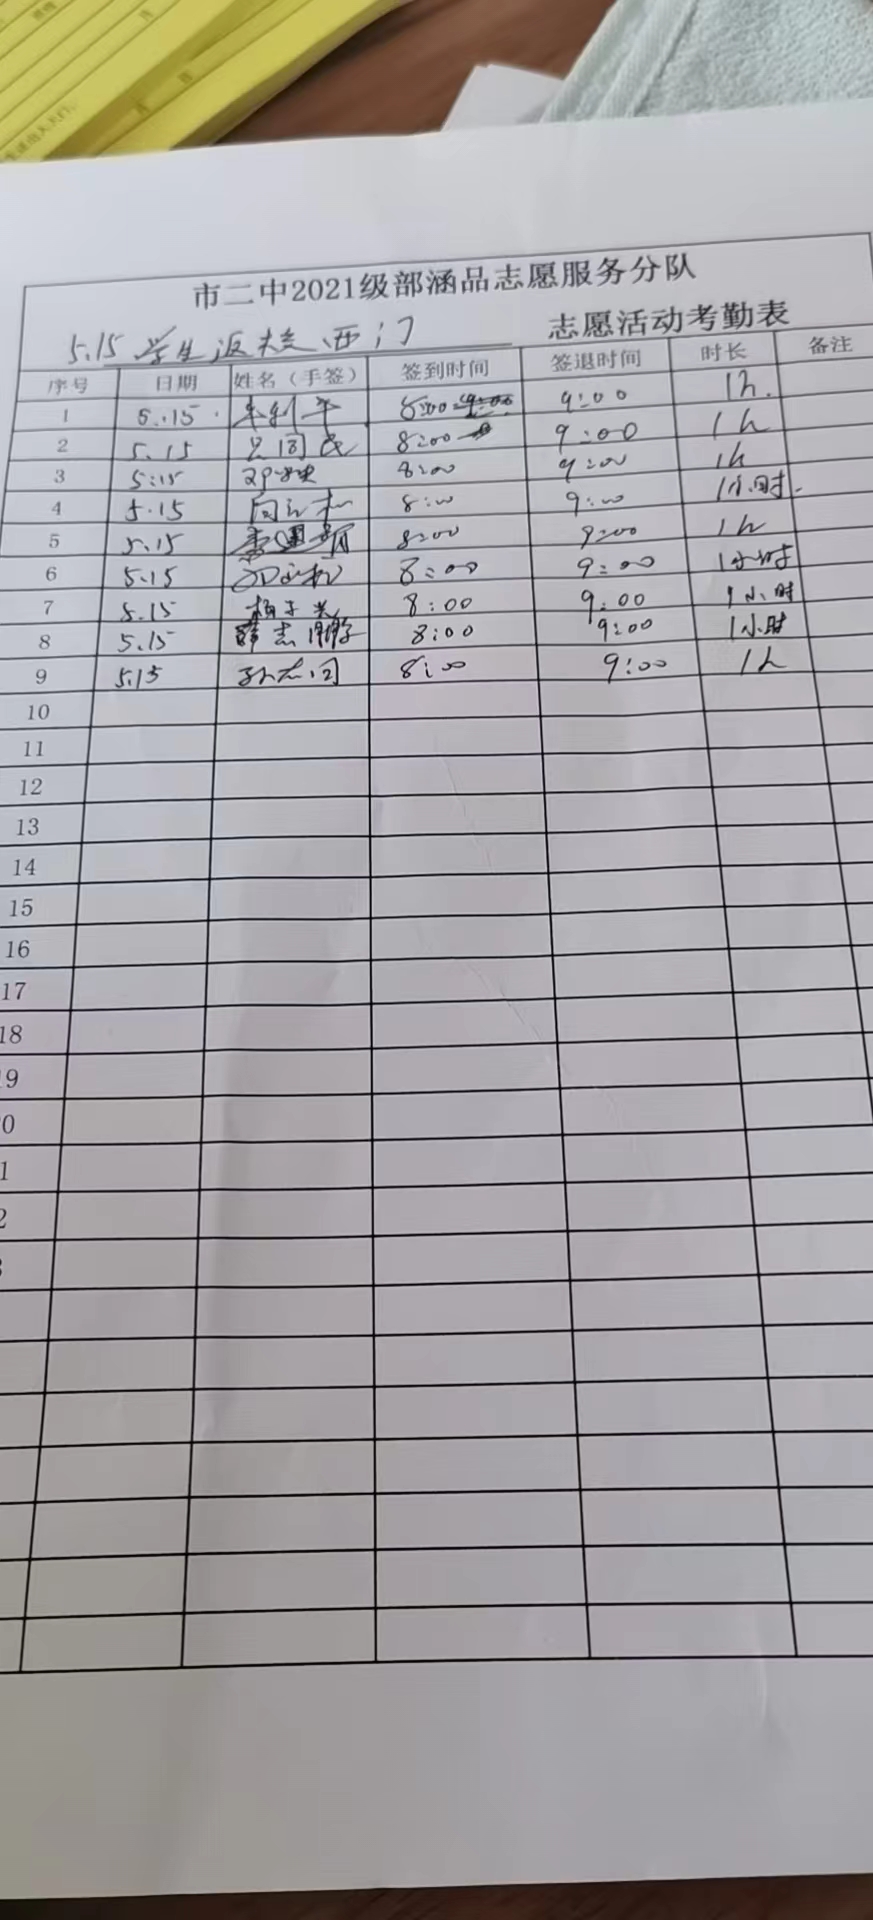 市二中2021级部涵品志愿服务分队
5.15 学生返校 西门 志愿活动考勤表
序号 日期 姓名（手签） 签到时间 签退时间 时长 备注
1 5.15 8:00 9:00 1h.
2 5.15 8:00 9:00 1h
3 5:15 8:00 9:00 1h
4 5.15 8:00 9:00 1小时.
5 5.15 8:00 9:00 1h
6 5.15 8:00 9:00 1小时
7 5.15 8:00 9:00 1小时
8 5.15 薛志 8:00 9:00 1小时
9 5.15 孙志 8:00 9:00 1h
10
11
12
13
14
15
16
17
18
19
0
1
2